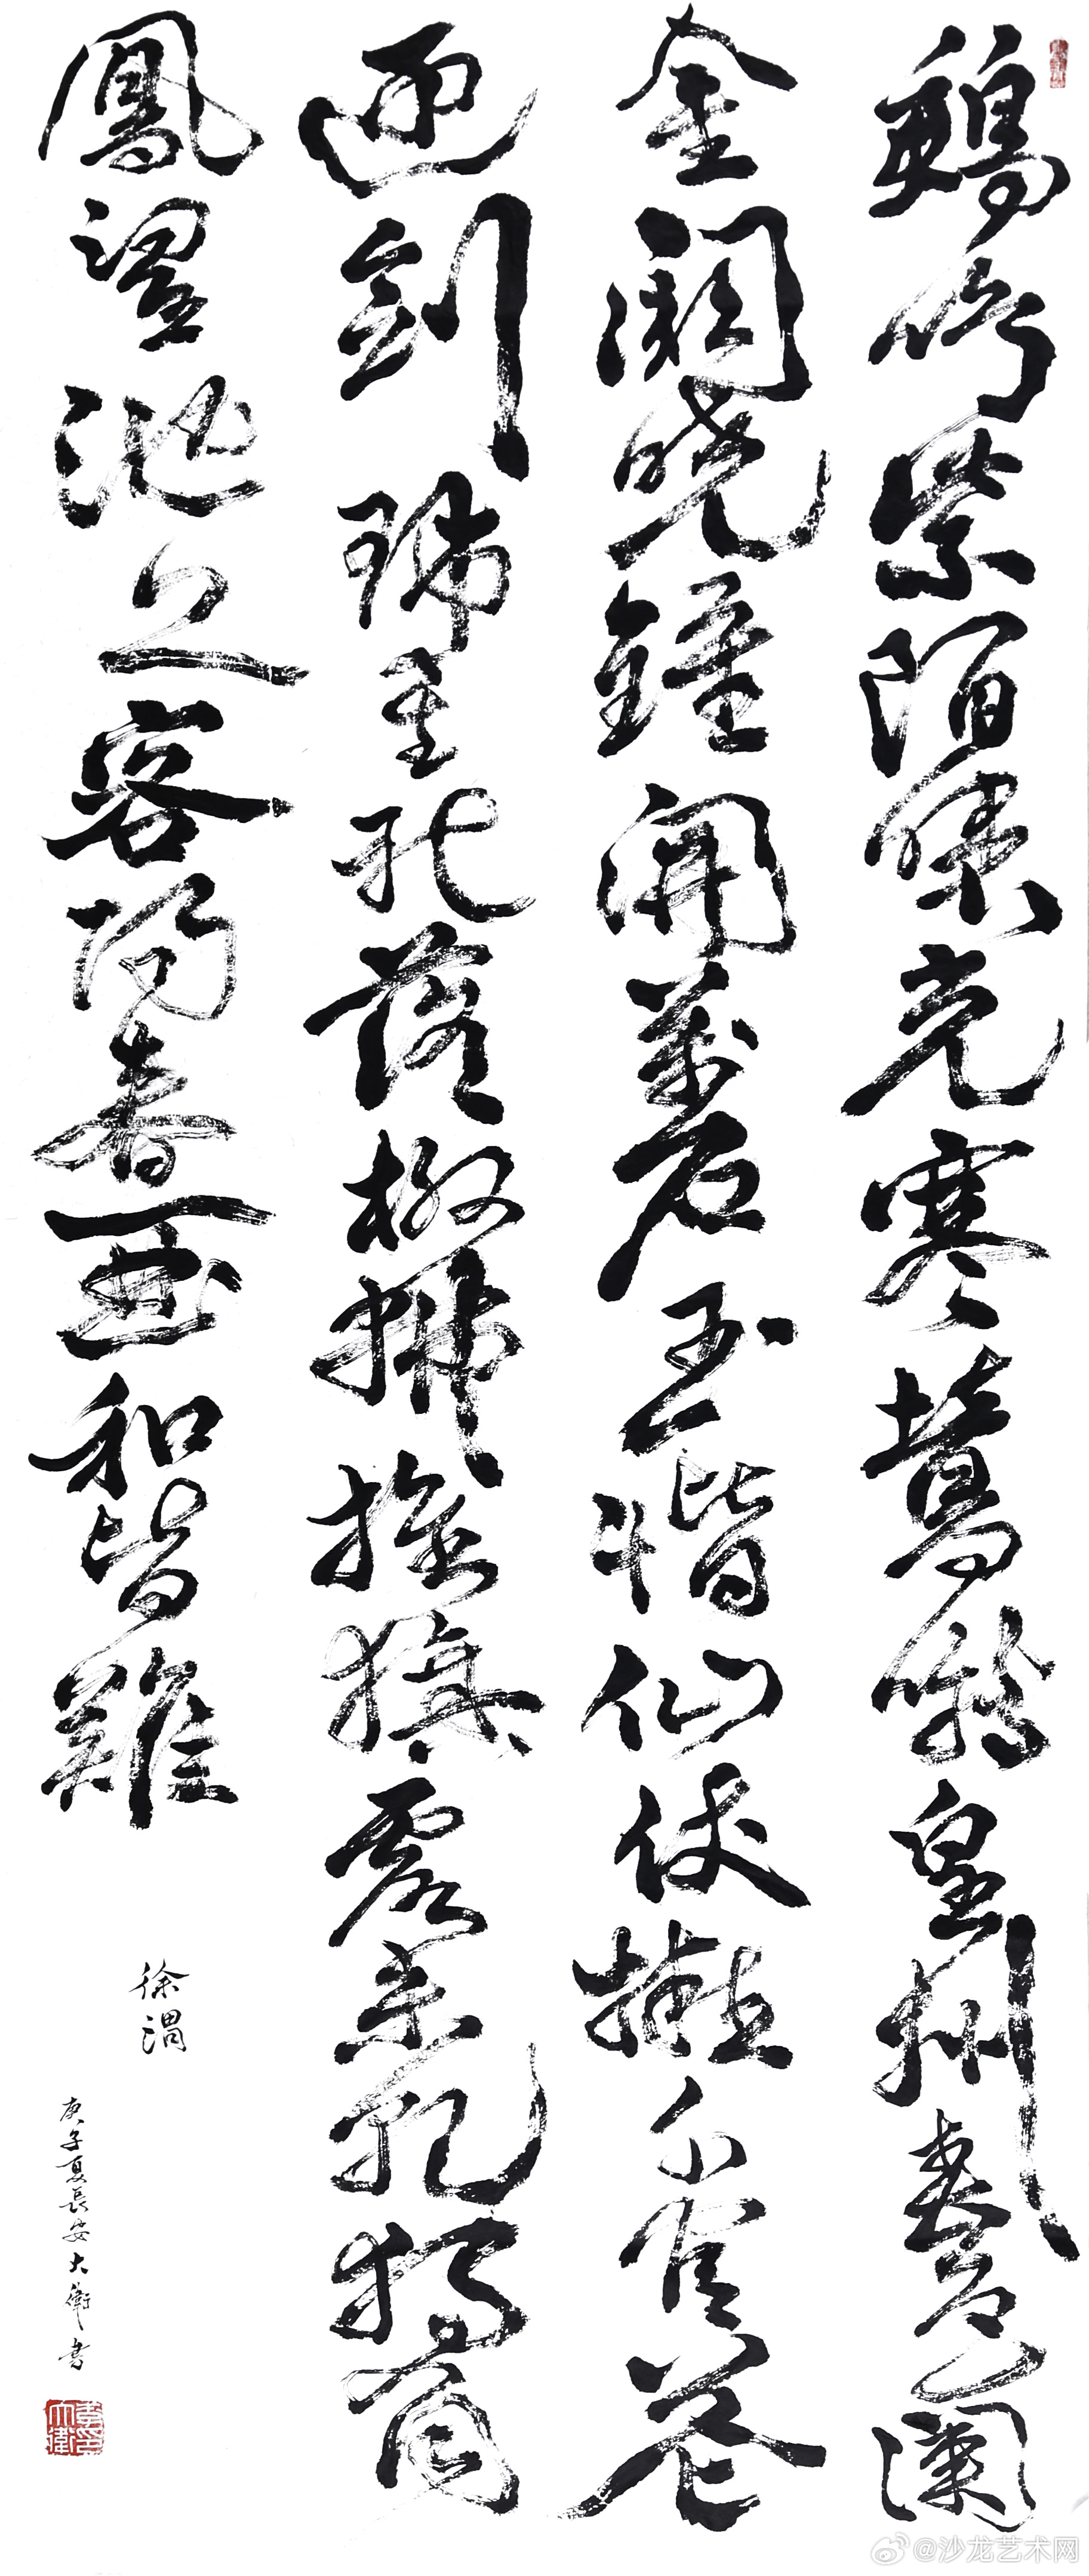 鷄鳴紫陌曙光寒鶯囀皇州春色闌
金闕曉鐘開萬户玉階仙仗擁千官花
迎劍珮星初落柳拂旌旗露未乾獨有
鳳凰池上客陽春一曲和皆難
徐渭
庚子夏長安大衛書
@沙龙艺术网